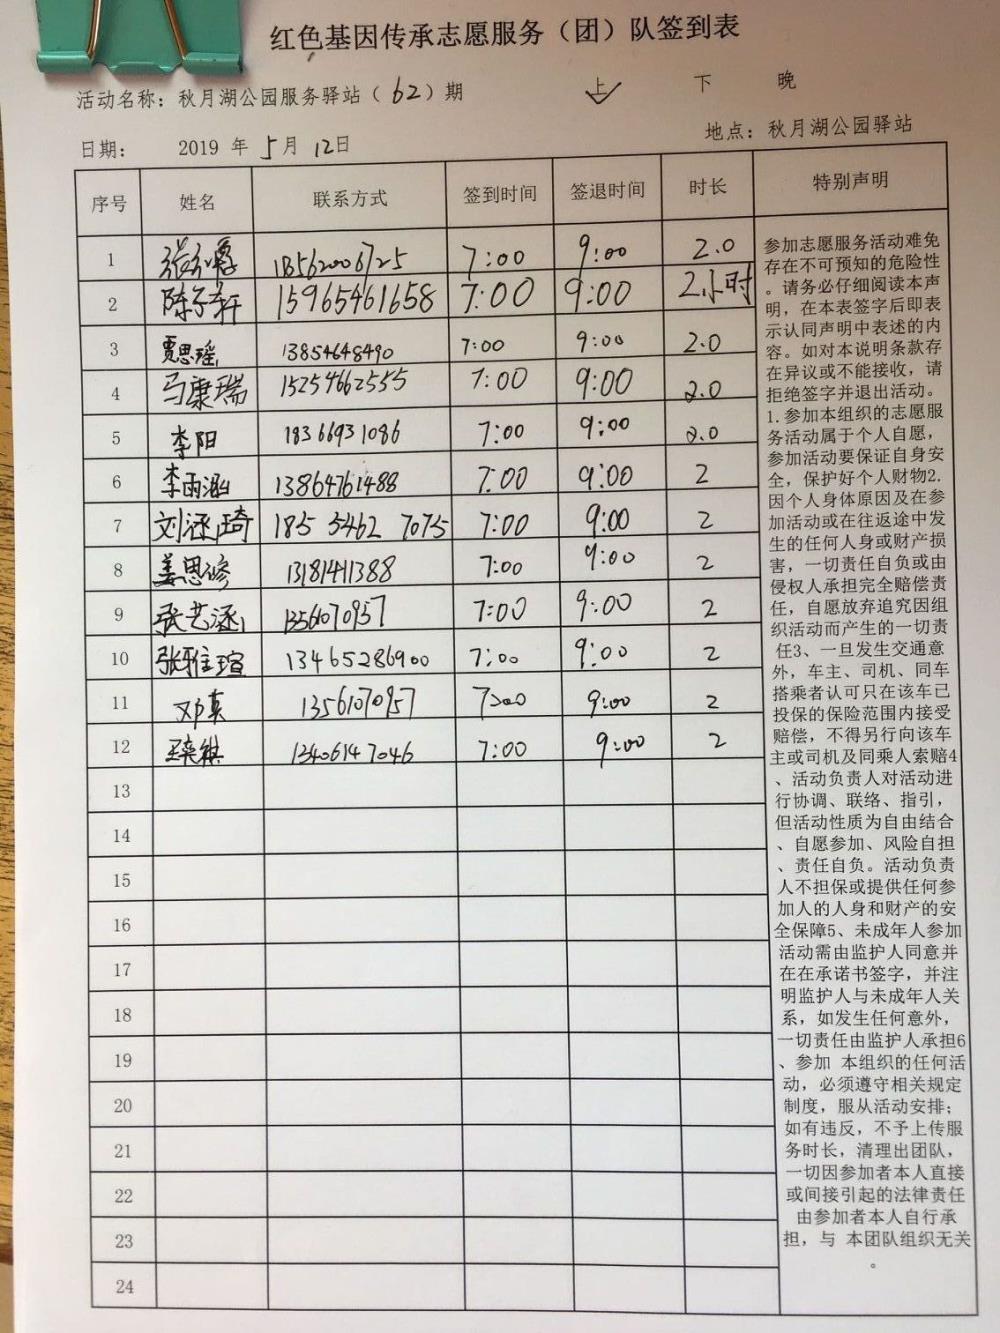 红色基因传承志愿服务（团）队签到表
活动名称：秋月湖公园服务驿站（62）期 上 ✓ 下 晚
日期： 2019 年 5月 12日 地点：秋月湖公园驿站
序号 姓名 联系方式 签到时间 签退时间 时长 特别声明
1 18562006725 7:00 9:00 2.0
2 陈子轩 15965461658 7:00 9:00 2小时
3 贾思瑶 13854648490 7:00 9:00 2.0
4 马康瑞 15254662555 7:00 9:00 2.0
5 李阳 18366931086 7:00 9:00 2.0
6 李雨涵 13864761488 7:00 9:00 2
7 刘涵琦 185 5462 7075 7:00 9:00 2
8 姜思修 13181411388 7:00 9:00 2
9 张艺涵 13561070957 7:00 9:00 2
10 张雅瑄 13465286900 7:00 9:00 2
11 邓真 13561070957 7:00 9:00 2
12 13406147046 7:00 9:00 2
13
14
15
16
17
18
19
20
21
22
23
24
参加志愿服务活动难免
存在不可预知的危险性
。请务必仔细阅读本声
明，在本表签字后即表
示认同声明中表述的内
容。如对本说明条款存
在异议或不能接收，请
拒绝签字并退出活动。
1.参加本组织的志愿服
务活动属于个人自愿，
参加活动要保证自身安
全，保护好个人财物2.
因个人身体原因及在参
加活动或在往返途中发
生的任何人身或财产损
害，一切责任自负或由
侵权人承担完全赔偿责
任，自愿放弃追究因组
织活动而产生的一切责
任3、一旦发生交通意
外，车主、司机、同车
搭乘者认可只在该车已
投保的保险范围内接受
赔偿，不得另行向该车
主或司机及同乘人索赔4
、活动负责人对活动进
行协调、联络、指引，
但活动性质为自由结合
、自愿参加、风险自担
、责任自负。活动负责
人不担保或提供任何参
加人的人身和财产的安
全保障5、未成年人参加
活动需由监护人同意并
在在承诺书签字，并注
明监护人与未成年人关
系，如发生任何意外，
一切责任由监护人承担6
、参加 本组织的任何活
动，必须遵守相关规定
制度，服从活动安排；
如有违反，不予上传服
务时长，清理出团队，
一切因参加者本人直接
或间接引起的法律责任
由参加者本人自行承
担，与 本团队组织无关
。